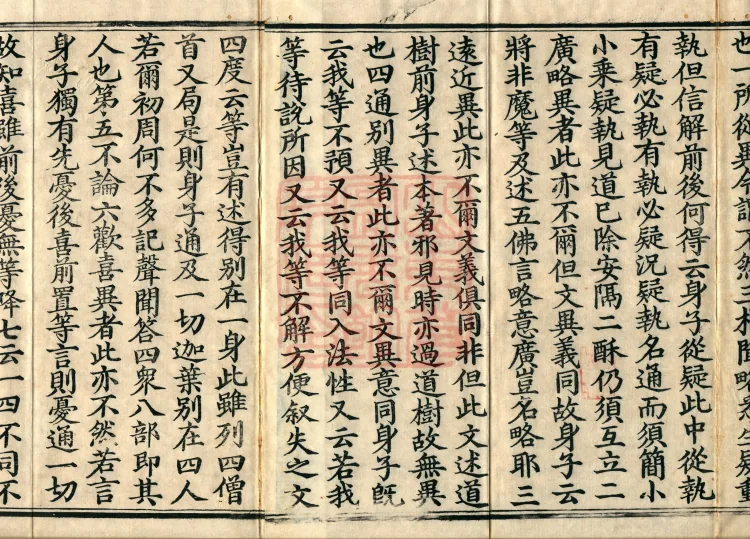 也一所從異今謂不然二相
執但信解前後何得云身子從疑此中從執
有疑必執有執必疑況疑執名通而須簡小
小乘疑執見道已除安隔二酥仍須互立二
廣略異者此亦不爾但文異義同故身子云
將非魔等及述五佛言略意廣豈名略耶三
遠近異此亦不爾文義俱同非但此文述道
樹前身子述本著邪見時亦過道樹故無異
也四通別異者此亦不爾文異意同身子旣
云我等不預又云我等同入法性又云若我
等待說所因又云我等不解方便叙失之文
四度云等豈有述得別在一身此雖列四僧
首又局是則身子通及一切迦葉別在四人
若爾初周何不多記聲聞答四衆八部即其
人也第五不論六歡喜異者此亦不然若言
身子獨有先憂後喜前置等言則憂通一切
故知喜雖前後憂無等降七云一四不同不